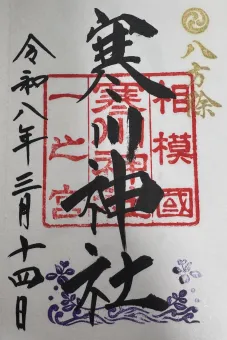 八方除
相模國
寒川神社
一之宮
寒川神社
令和八年三月十四日